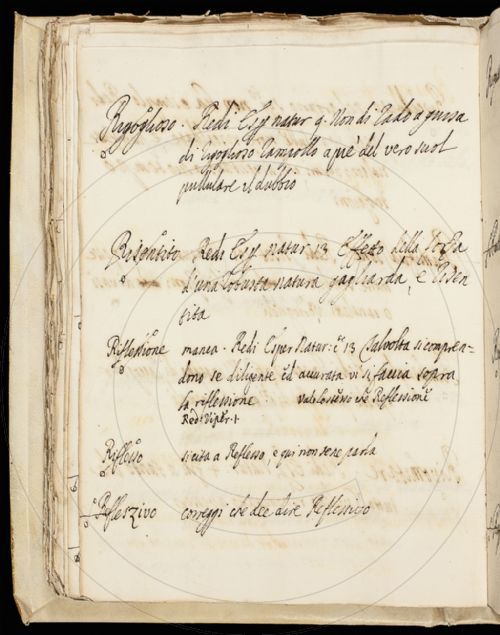 Rigoglioso. Redi Esp natur 9. Non di rado a guisa
di rigoglioso rampollo a piè del vero suol
pullulare il dubbio
Risentito Redi Esp natur 13 Effetto della forza
d'una robusta natura gagliarda, e risen
tita
Riflessione manca. Redi Esper Natur: 13 Talvolta si compren=
dono se diligente ed accurata vi si faccia sopra
la riflessione vale lo stesso che Reflessione
Red: Viper. 1.
Riflesso si cita a Reflesso e qui non se ne parla
Reflerzivo correggi che dee dire Reflessivo